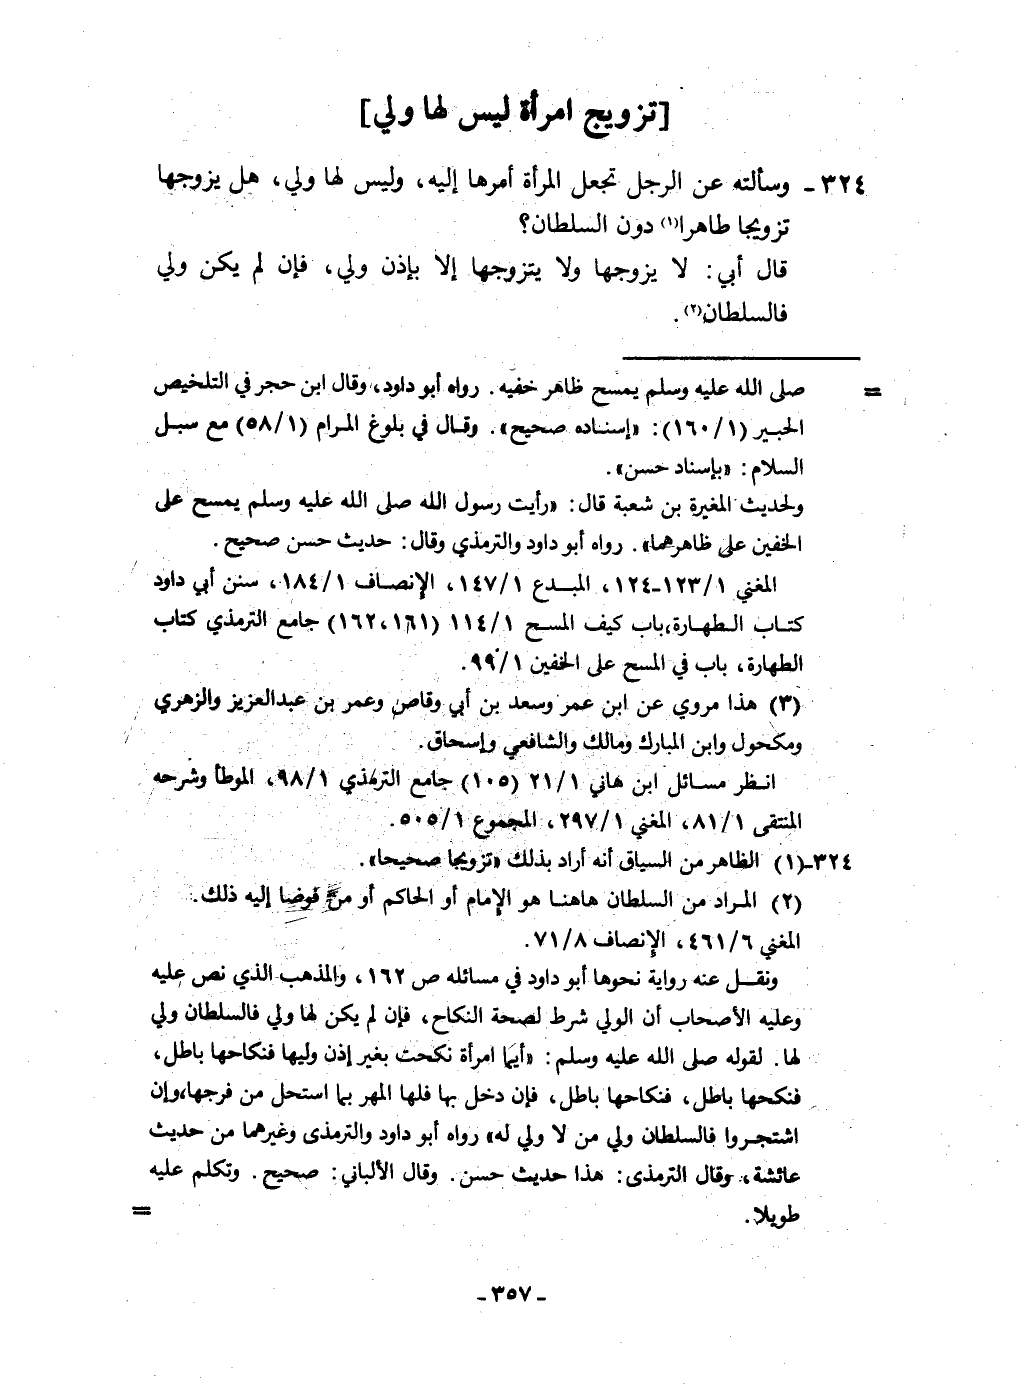 [تزويج امرأة ليس لها ولي]
٣٢٤ـ وسألته عن الرجل تجعل المرأة أمرها إليه، وليس لها ولي، هل يزوجها
تزويجا طاهرا(١) دون السلطان؟
قال أبي: لا يزوجها ولا يتزوجها إلا بإذن ولي، فإن لم يكن ولي
فالسلطان(٢).
= صلى الله عليه وسلم يمسح ظاهر خفيه. رواه أبو داود، وقال ابن حجر في التلخيص
الحبير (١/١٦٠): «إسناده صحيح». وقال في بلوغ المرام (١/٥٨) مع سبل
السلام: «بإسناد حسن».
ولحديث المغيرة بن شعبة قال: «رأيت رسول الله صلى الله عليه وسلم يمسح على
الخفين على ظاهرهما». رواه أبو داود والترمذي وقال: حديث حسن صحيح.
المغني ١/١٢٣ـ١٢٤، المبدع ١/١٤٧، الإنصاف ١/١٨٤، سنن أبي داود
كتاب الطهارة، باب كيف المسح ١/١١٤ (١٦١، ١٦٢) جامع الترمذي كتاب
الطهارة، باب في المسح على الخفين ١/٩٩.
(٣) هذا مروي عن ابن عمر وسعد بن أبي وقاص وعمر بن عبدالعزيز والزهري
ومكحول وابن المبارك ومالك والشافعي وإسحاق.
انظر مسائل ابن هاني ١/٢١ (١٠٥) جامع الترمذي ١/٩٨، الموطأ وشرحه
المنتقى ١/٨١، المغني ١/٢٩٧، المجموع ١/٥٠٥.
٣٢٤ـ(١) الظاهر من السياق أنه أراد بذلك «تزويجا صحيحا».
(٢) المراد من السلطان هاهنا هو الإمام أو الحاكم أو من فوضا إليه ذلك.
المغني ٦/٤٦١، الإنصاف ٨/٧١.
ونقل عنه رواية نحوها أبو داود في مسائله ص ١٦٢، والمذهب الذي نص عليه
وعليه الأصحاب أن الولي شرط لصحة النكاح، فإن لم يكن لها ولي فالسلطان ولي
لها. لقوله صلى الله عليه وسلم: «أيما امرأة نكحت بغير إذن وليها فنكاحها باطل،
فنكحها باطل، فنكاحها باطل، فإن دخل بها فلها المهر بما استحل من فرجها، وإن
اشتجروا فالسلطان ولي من لا ولي له» رواه أبو داود والترمذى وغيرهما من حديث
عائشة، وقال الترمذى: هذا حديث حسن. وقال الألباني: صحيح. وتكلم عليه
طويلا. =
ـ ٣٥٧ ـ